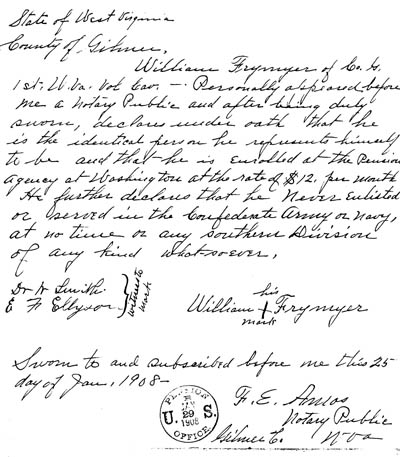 State of West Virginia
County of Gilmer,
William Frymyer of Co. G.
1st. W. Va. Vol Cav. — Personally appeared before
me a Notary Public and after being duly
sworn, declares under oath that he
is the identical person he represents himself
to be and that he is Enrolled at the Pension
Agency at Washington at the rate of $12. per month
He further declares that he Never Enlisted
or served in the Confederate Army or Navy,
at no time or any southern Division
of any kind what-so-ever,
Smith.
E F Ellyson
witness to
mark
his
William X Frymyer
mark
Sworn to and subscribed before me this 25
day of Jan, 1908-
F. E. Amos
Notary Public
Gilmer C. W Va
PENSION
JAN
U. 29 S.
1908
OFFICE